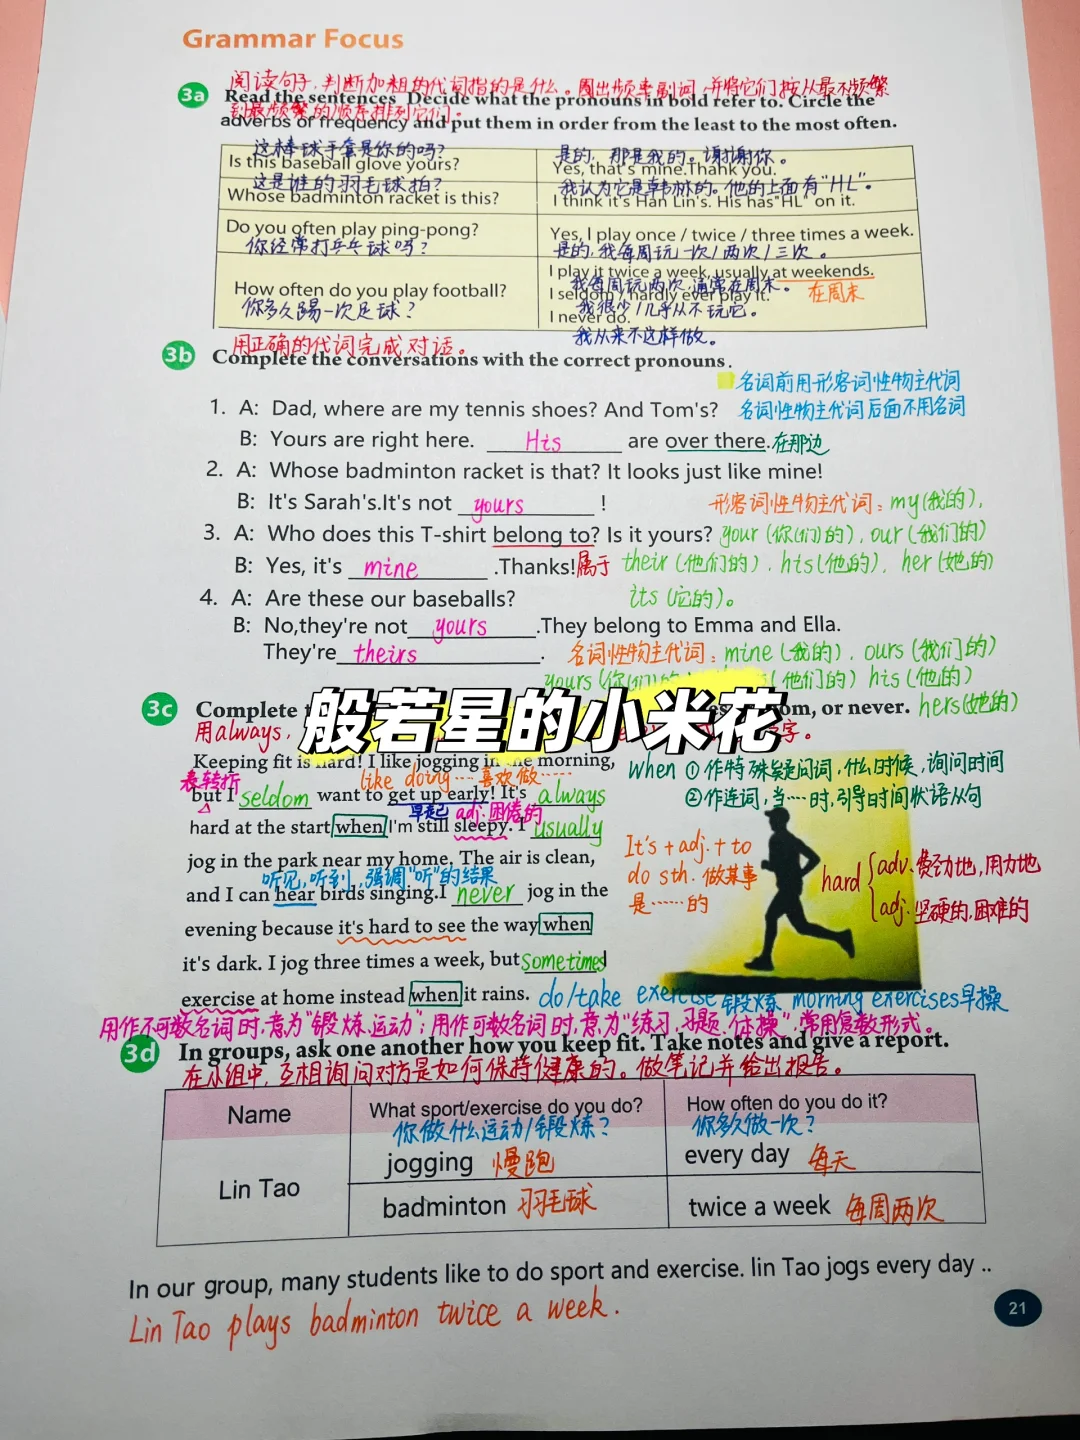 Grammar Focus
阅读句子,判断加粗的代词指的是什么。圈出频率副词,并将它们按从最不频繁
3a Read the sentences Decide what the pronouns in bold refer to. Circle the
到最频繁的顺序排列它们。
adverbs of frequency and put them in order from the least to the most often.
这棒球手套是你的吗?
是的,那是我的。谢谢你。
Is this baseball glove yours?
Yes, that's mine.Thank you.
这是谁的羽毛球拍?
我认为它是韩林的。他的上面有"HL"。
Whose badminton racket is this?
I think it's Han Lin's. His has"HL" on it.
Do you often play ping-pong?
Yes, I play once / twice / three times a week.
你经常打乒乓球吗?
是的,我每周玩一次/两次/三次。
How often do you play football?
你多久踢一次足球?
I play it twice a week, usually at weekends.
我每周玩两次,通常在周末。
在周末
I seldom / hardly ever play it.
我很少/几乎从不玩它。
I never do.
我从来不这样做。
用正确的代词完成对话。
3b Complete the conversations with the correct pronouns.
名词前用形容词性物主代词
1. A: Dad, where are my tennis shoes? And Tom's?
名词性物主代词后面不用名词
B: Yours are right here. His are over there.在那边
2. A: Whose badminton racket is that? It looks just like mine!
B: It's Sarah's.It's not yours !
形容词性物主代词:my(我的),
3. A: Who does this T-shirt belong to? Is it yours?
your(你(们)的),our(我们的)
B: Yes, it's mine .Thanks!属于
their(他们的),his(他的),her(她的)
4. A: Are these our baseballs?
its(它的)。
B: No,they're not yours .They belong to Emma and Ella.
They're theirs .
名词性物主代词:mine(我的),ours(我们的)
(他们的) his(他的)
hers(她的)
3c Complete
or never.
般若星的小米花
用always,
Keeping fit is hard! I like jogging in the morning,
like doing…喜欢做……
表转折
but I seldom want to get up early! It's always
早起 adj.困倦的
hard at the start when I'm still sleepy. I usually
jog in the park near my home. The air is clean,
听见,听到,强调"听"的结果
and I can hear birds singing.I never jog in the
evening because it's hard to see the way when
it's dark. I jog three times a week, but sometimes I
exercise at home instead when it rains.
when ①作特殊疑问词,什么时候,询问时间
②作连词,当……时,引导时间状语从句
It's + adj. + to
do sth. 做某事
是……的
hard
adv.费劲地,用力地
adj.坚硬的,困难的
do/take exercise锻炼 morning exercises早操
用作不可数名词时,意为"锻炼,运动";用作可数名词时,意为"练习,习题,体操",常用复数形式。
3d In groups, ask one another how you keep fit. Take notes and give a report.
在小组中,互相询问对方是如何保持健康的。做笔记并给出报告。
Name
What sport/exercise do you do?
How often do you do it?
你做什么运动/锻炼?
你多久做一次?
Lin Tao
jogging 慢跑
every day 每天
badminton 羽毛球
twice a week 每周两次
In our group, many students like to do sport and exercise. lin Tao jogs every day ..
Lin Tao plays badminton twice a week.
21